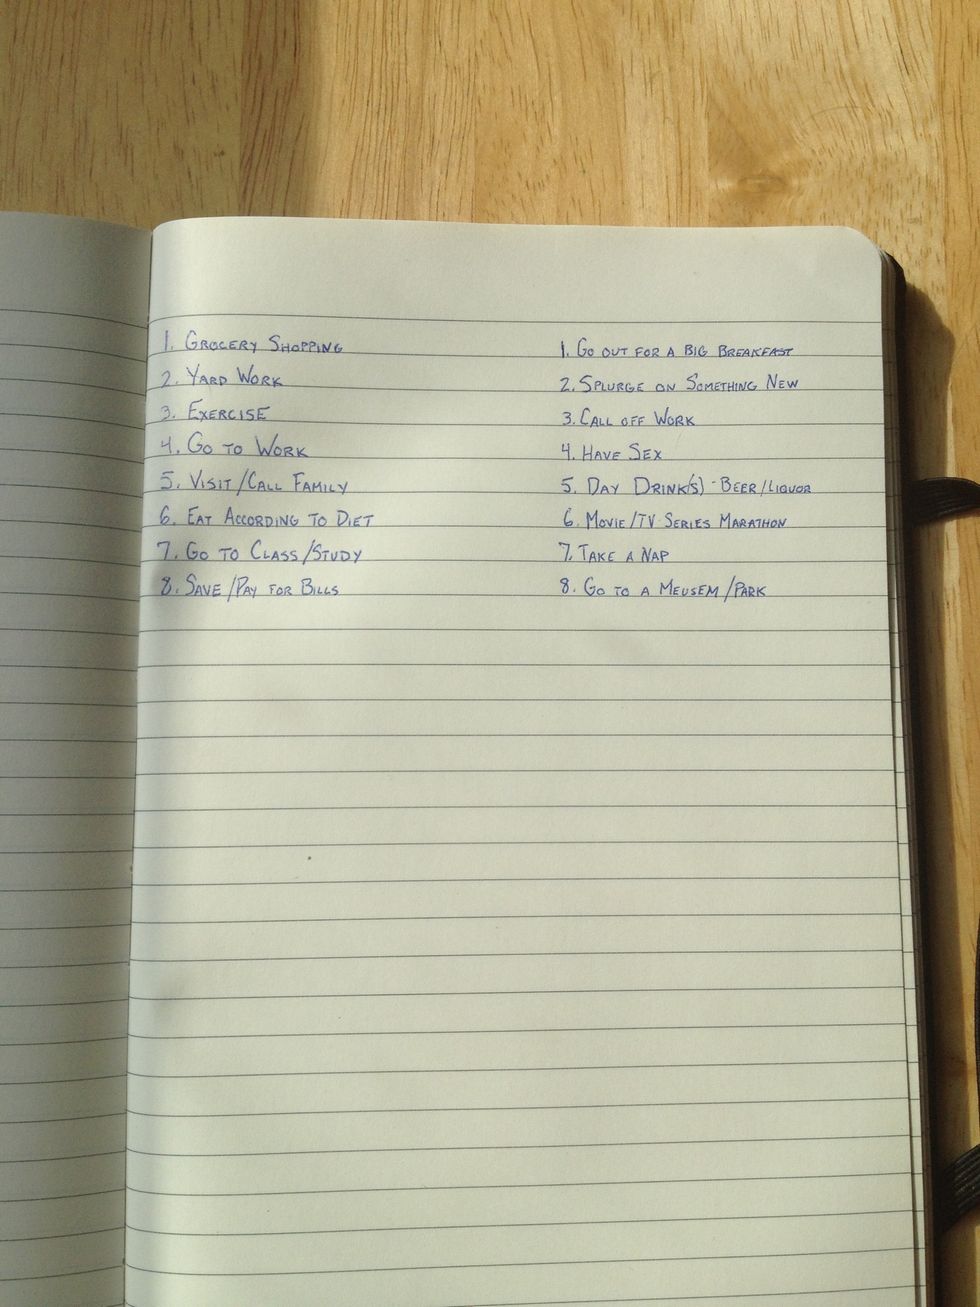 1. Grocery Shopping
2. Yard Work
3. Exercise
4. Go to Work
5. Visit/Call Family
6. Eat According to Diet
7. Go to Class/Study
8. Save/Pay for Bills
1. Go out for a Big Breakfast
2. Splurge on Something New
3. Call off Work
4. Have Sex
5. Day Drink(s) - Beer/Liquor
6. Movie/TV Series Marathon
7. Take a Nap
8. Go to a Meusem/Park